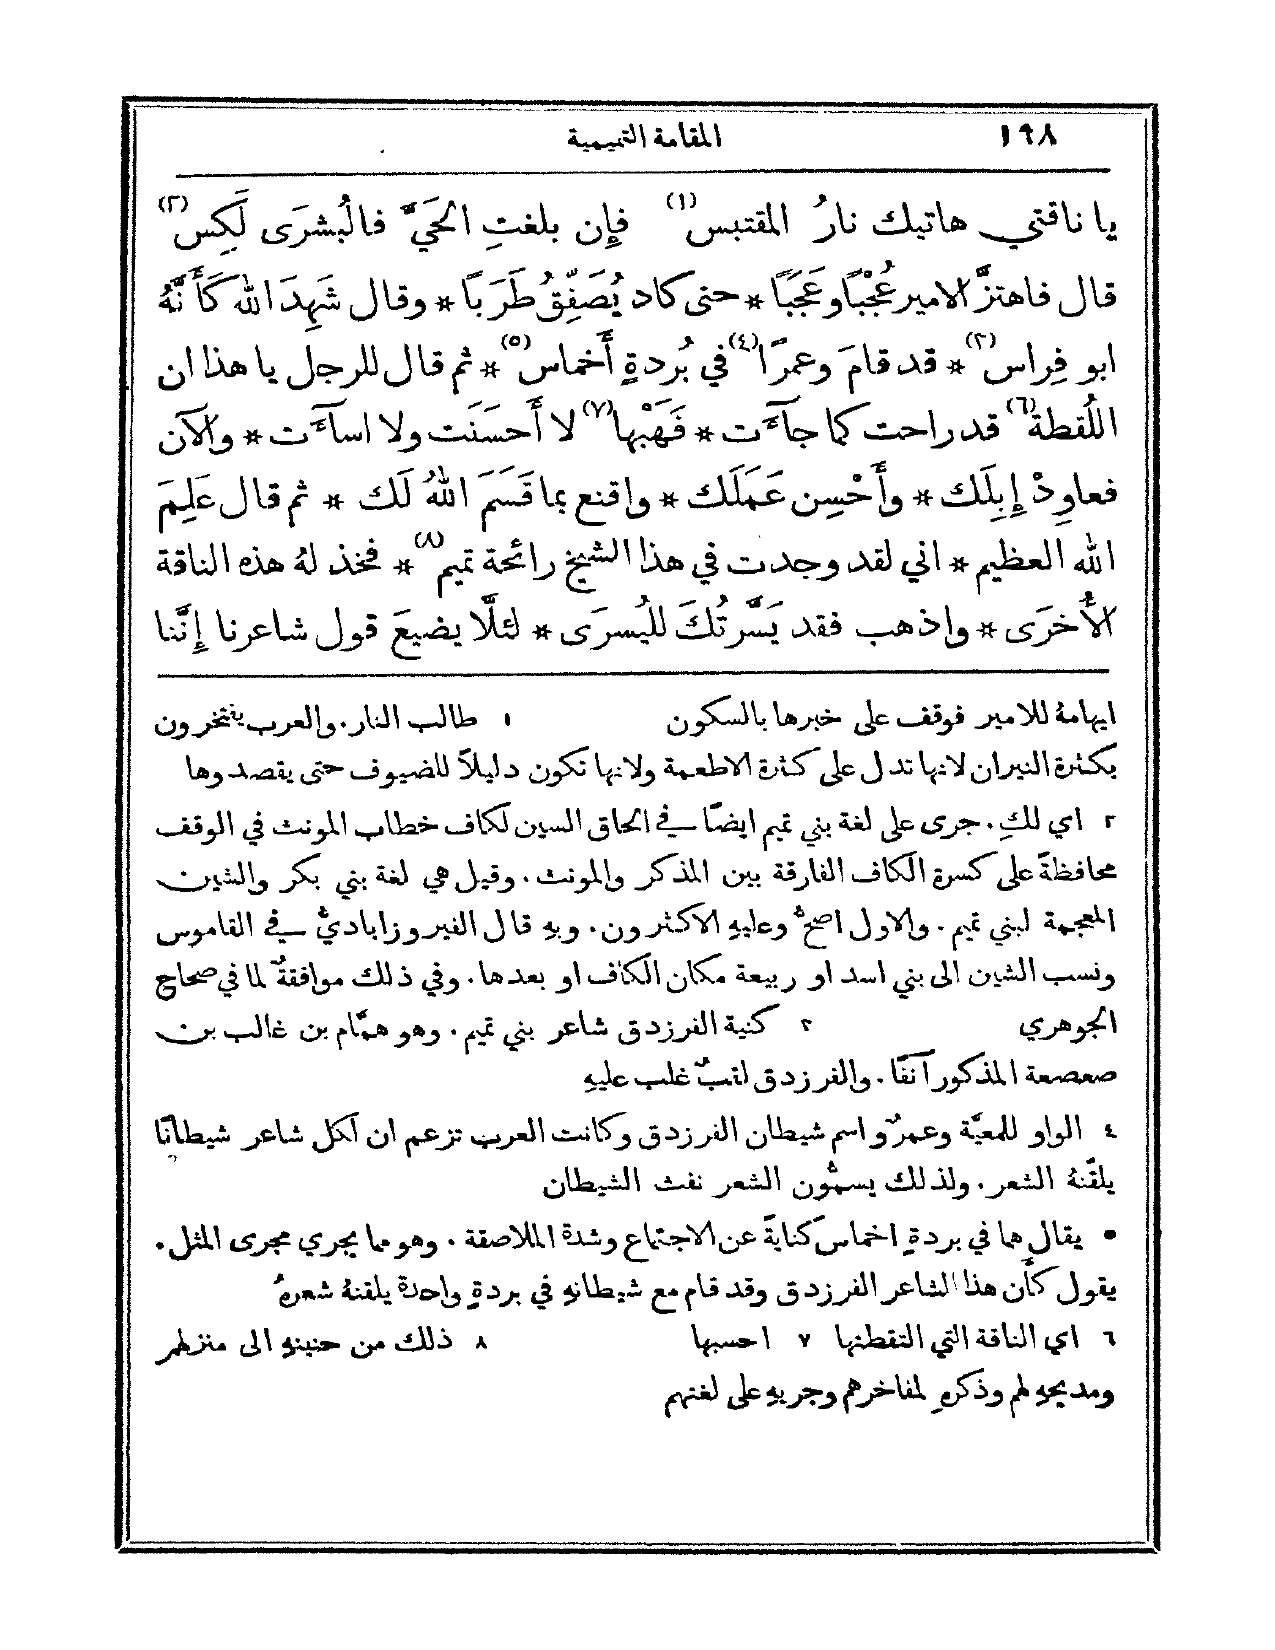 ١٩٨ المقامة التميمية
يا ناقتي هاتيك نارُ المقتبس(١) فإِن بلغتِ الحَيَّ فالبُشرَى لَكِس(٢)
قال فاهتزَّ الامير عُجْبًا وعَجَبًا * حتى كاد يُصَفِّقُ طَرَبًا * وقال شَهِدَ الله كأَنَّهُ
ابو فِراس(٣) * قد قامَ وعمرًا(٤) في بُردةِ أَخماس(٥) * ثم قال للرجل يا هذا ان
اللُقطة(٦) قد راحت كما جآءَت * فَهَبْها(٧) لا أَحسَنَت ولا اسآءَت * والآن
فعاوِدْ إِبِلَك * وأَحْسِن عَمَلَك * واقنع بما قَسَمَ اللهُ لَك * ثم قال عَلِمَ
الله العظيم * اني لقد وجدت في هذا الشيخ رائحة تميم(٨) * فخذ لهُ هذه الناقة
الأُخرَى * واذهب فقد يَسَّرتُكَ لليُسرَى * لئلَّا يضيعَ قول شاعرنا إِنَّنا
ايهامهُ للامير فوقف على خبرها بالسكون ١ طالب النار. والعرب يفتخرون
بكثرة النيران لانها تدل على كثرة الاطعمة ولانها تكون دليلًا للضيوف حتى يقصدوها
٢ اي لكِ. جرى على لغة بني تميم ايضًا في الحاق السين لكاف خطاب المونث في الوقف
محافظةً على كسرة الكاف الفارقة بين المذكر والمونث. وقيل هي لغة بني بكر والشين
المعجمة لبني تميم. والاول اصحُّ وعليهِ الاكثرون. وبهِ قال الفيروزاباديُّ في القاموس
ونسب الشين الى بني اسد او ربيعة مكان الكاف او بعدها. وفي ذلك موافقةٌ لما في صحاح
الجوهري ٣ كنية الفرزدق شاعر بني تميم. وهو همَّام بن غالب بن
صعصعة المذكور آنفًا. والفرزدق لقبٌ غلب عليهِ
٤ الواو للمعيَّة وعمرٌو اسم شيطان الفرزدق وكانت العرب تزعم ان لكل شاعر شيطانًا
يلقّنهُ الشعر. ولذلك يسمُّون الشعر نفث الشيطان
٥ يقال هما في بردةِ اخماس كنايةً عن الاجتماع وشدة الملاصقة. وهو مما يجري مجرى المثل.
يقول كأَن هذا الشاعر الفرزدق وقد قام مع شيطانهِ في بردةٍ واحدة يلقنهُ شعرهُ
٦ اي الناقة التي التقطنها ٧ احسبها ٨ ذلك من حنينهِ الى منزلهم
ومديحهِ لهم وذكرهِ لمفاخرهم وجريهِ على لغتهم